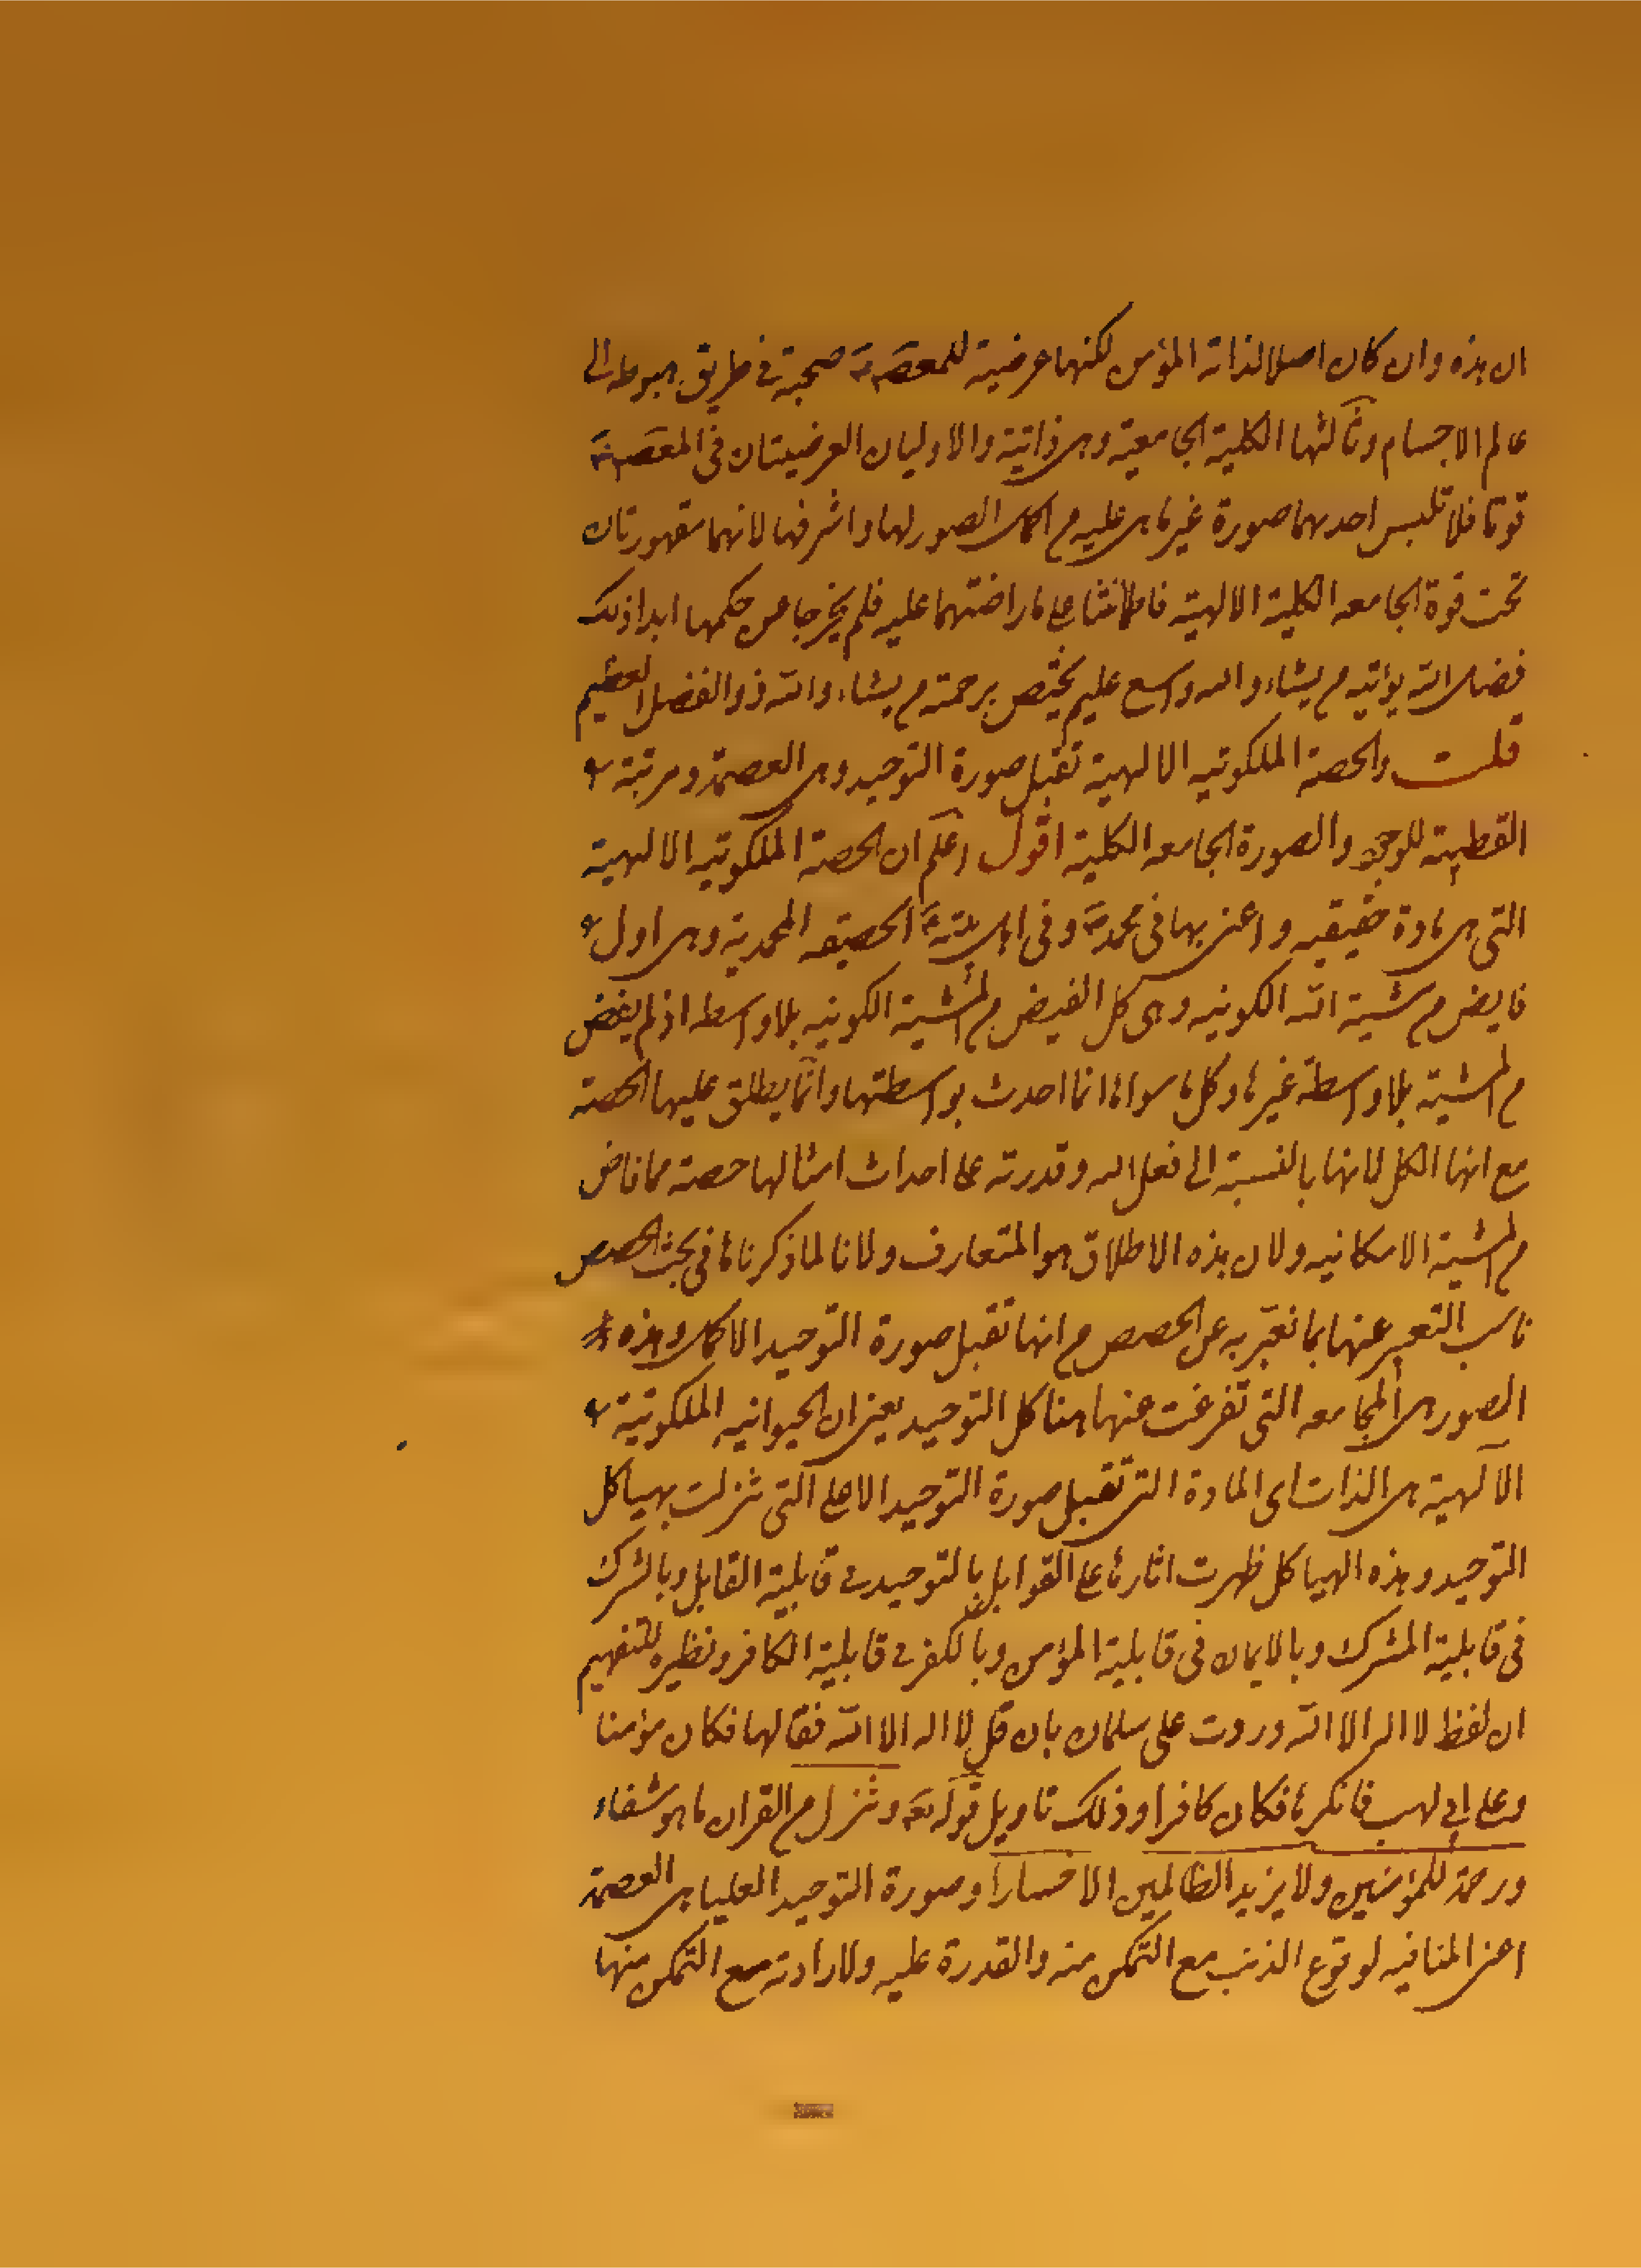 ان هذه وان كان اصلا لذاته المؤمن لكنها عرضية للمعصوم صحبته في طريق هبوطه الى
عالم الاجسام وثالثها الكلية الجامعية وهى ذاتية والاوليان العرضيتان فى المعصوم
قوتا فلا تلبس احدهما صورة غير ما هى عليه من اكمل الصور لهما واشرفها لانهما مقهورتان
تحت قوة الجامعه الكلية الالهية فاطمأنتا على ما راضتهما عليه فلم يخرجا عن حكمها ابدا ذلك
فضل الله يؤتيه من يشاء والله واسع عليم يختص برحمته من يشاء والله ذو الفضل العظيم
قلت والحصة الملكوتيه الالهية تقبل صورة التوحيد وهى العصمة ومرتبة
القطبية للوجود والصورة الجامعه الكلية اقول اعلم ان الحصة الملكوتيه الالهية
التى هى مادة حقيقيه واعنى بها فى محمد وفى اهل بيته الحقيقه المحمدية وهى اول
فايض من مشية الله الكونيه وهى كل الفيض من المشية الكونيه بلا واسطه اذ لم يفض
من المشية بلا واسطة غيرها وكل ما سواها انما احدث بواسطتها وانما يطلق عليها الحصة
مع انها الكل لانها بالنسبة الى فعل الله وقدرته على احداث امثالها حصة مما فاض
من المشية الامكانيه ولان هذه الاطلاق هو المتعارف ولانا لما ذكرناها فى بحث الحصص
ناسب التعبير عنها بما نعبّر به عن الحصص من انها تقبل صورة التوحيد الاكمل وهذه
الصور هى الجامعه التى تفرغت عنها هياكل التوحيد يعنى ان الحيوانيه الملكوتية
الالهية هى الذات اى المادة التى تقبل صورة التوحيد الاعلى التى نزلت بهياكل
التوحيد وهذه الهياكل ظهرت اثارها على القوابل بالتوحيد فى قابلية القابل وبالشرك
فى قابلية المشرك وبالايمان فى قابلية المؤمن وبالكفر فى قابلية الكافر ونظيره للتفهيم
ان لفظ لا اله الا الله وردت على سلمان بان قل لا اله الا الله فقالها فكان مؤمنا
وعلى ابى لهب فانكرها فكان كافرا وذلك تاويل قوله تعالى وننزل من القران ما هو شفاء
ورحمة للمؤمنين ولا يزيد الظالمين الا خسارا وصورة التوحيد العليا هى العصمة
اعنى المنافيه لوقوع الذنب مع التمكن منه والقدرة عليه ولارادته مع التمكن منها